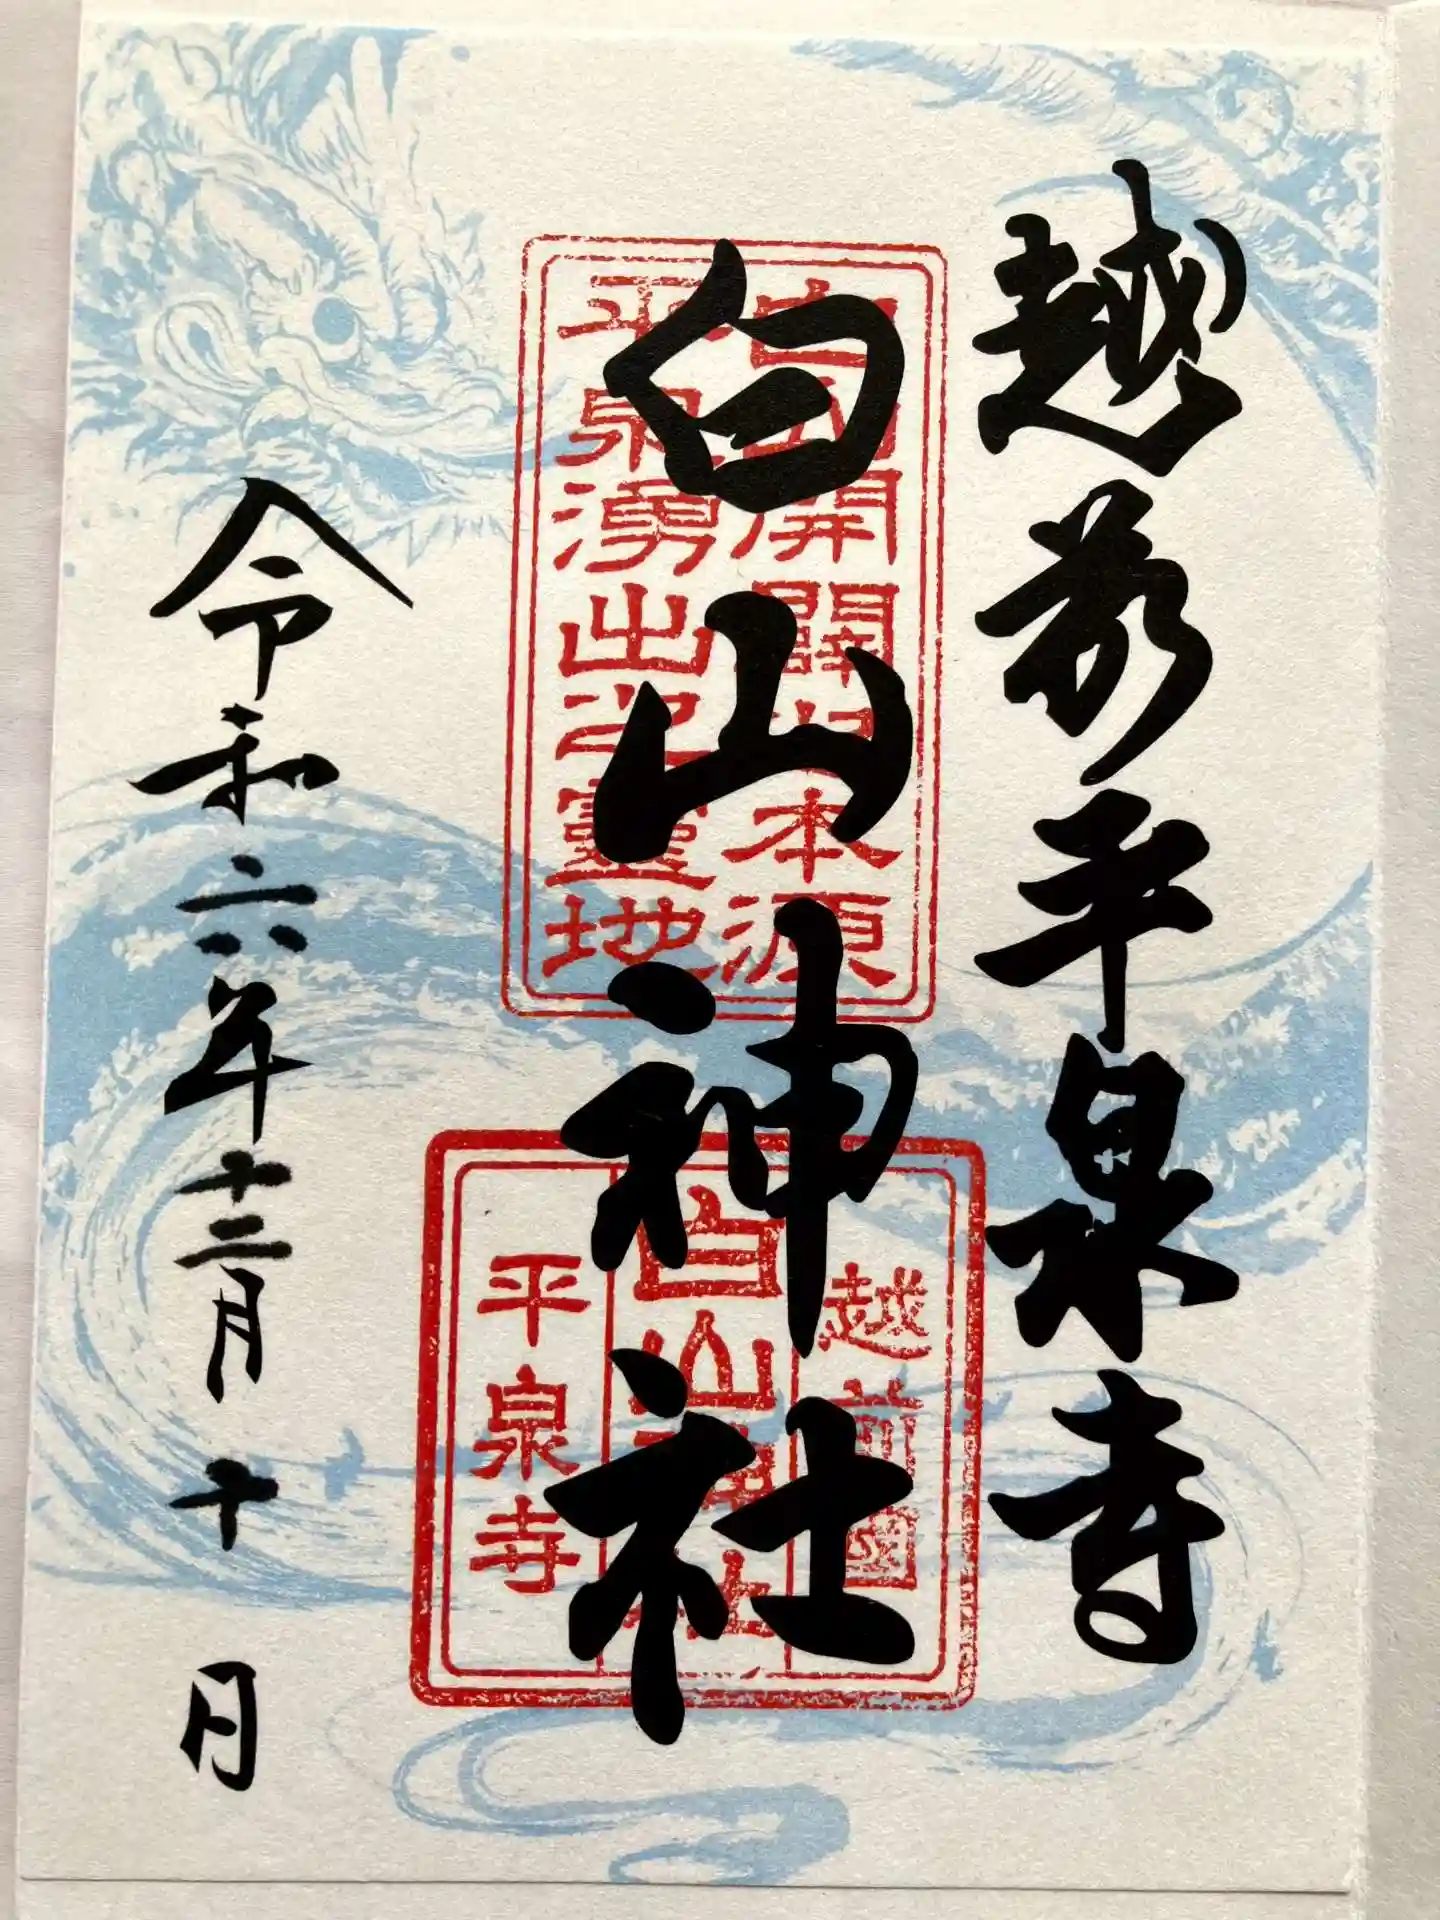 越前平泉寺
白山神社
令和六年十二月十日
白山開闢之本源
平泉湧出之靈地
越前國
白山神社
平泉寺